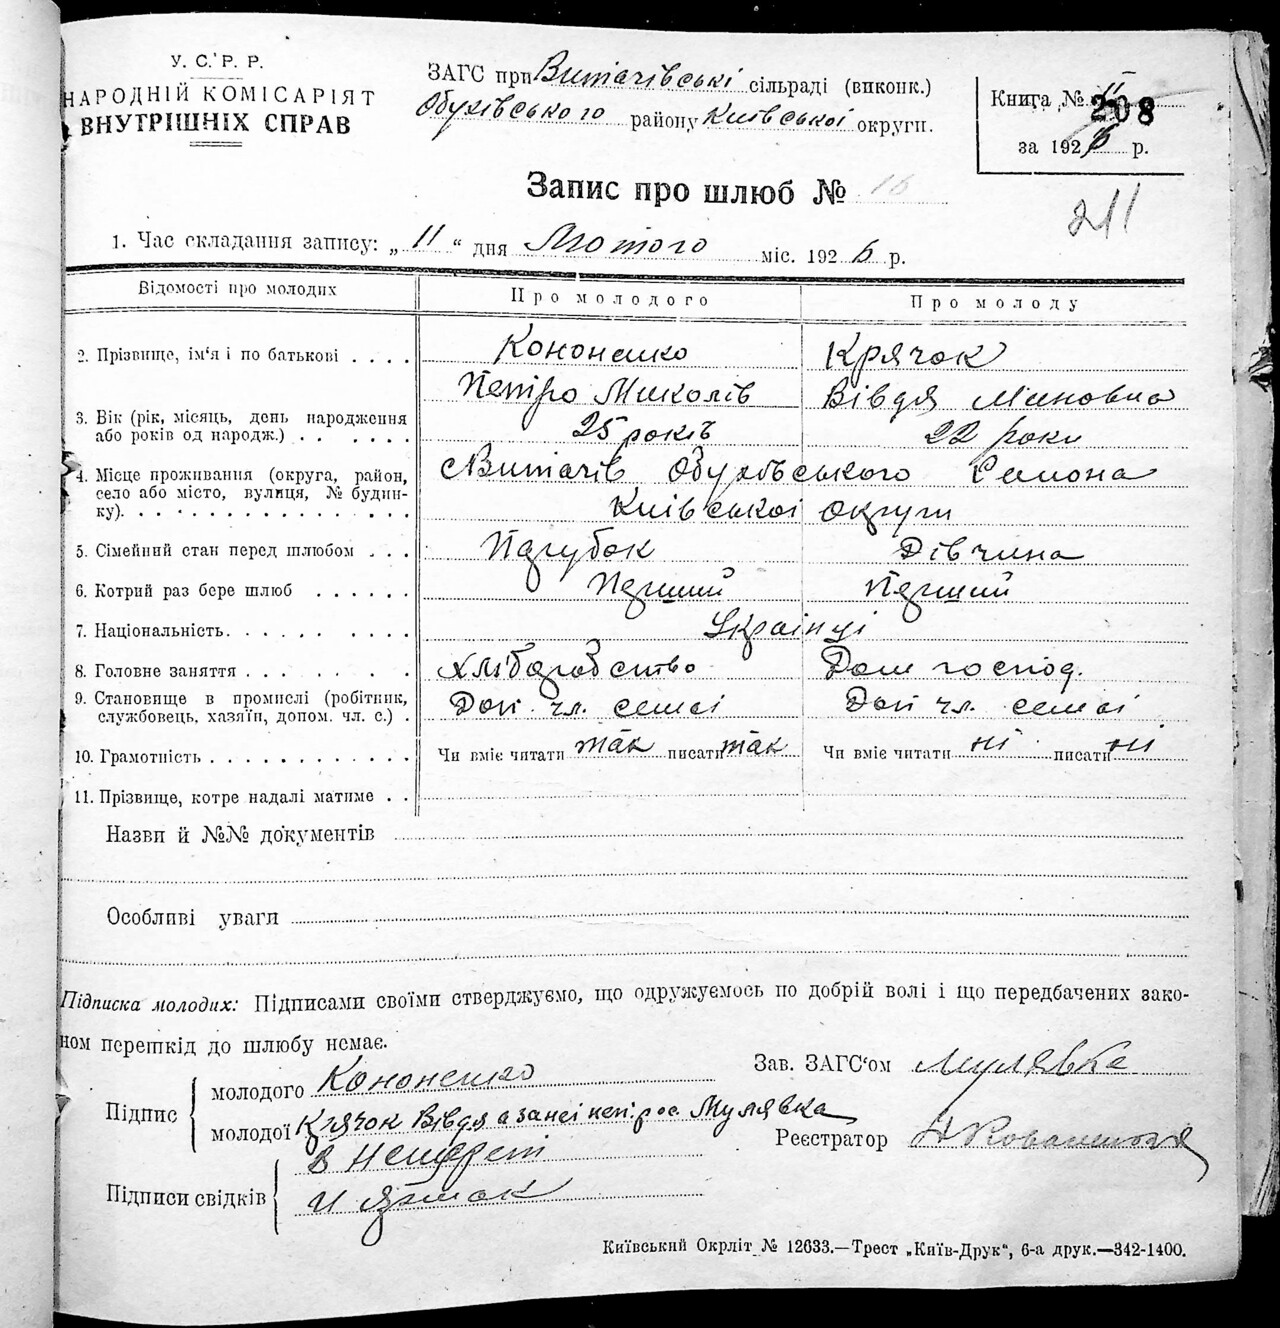 У. С. Р. Р.
НАРОДНІЙ КОМІСАРІЯТ
ВНУТРІШНІХ СПРАВ
ЗАГС при Витачівські сільраді (виконк.)
Обухівського району Київської округи.
Книга № II
208
за 1926 р.
Запис про шлюб № 16
211
1. Час складання запису: „11“ дня Лютого міс. 1926 р.
Відомості про молодих Про молодого Про молоду
2. Прізвище, ім'я і по батькові . . . . Кононенко Крячок
Петро Миколів Вівдя Миновна
3. Вік (рік, місяць, день народження
або років од народж.) . . . . . . 25 років 22 роки
4. Місце проживання (округа, район,
село або місто, вулиця, № будин-
ку). . . . . . . . . . . . . . . .
с Витачів Обухівського
Київської округи
5. Сімейний стан перед шлюбом . . . Парубок Дівчина
6. Котрий раз бере шлюб . . . . . . Перший Перший
7. Національність. . . . . . . . . . Українці
8. Головне заняття . . . . . . . . . Хліборобство Дом господ.
9. Становище в промислі (робітник,
службовець, хазяїн, допом. чл. с.) . Доп. чл. семьі Доп чл. семьі
10. Грамотність . . . . . . . . . . . . Чи вміє читати так писати так Чи вміє читати ні писати ні
11. Прізвище, котре надалі матиме . .
Назви й №№ документів
Особливі уваги
Підписка молодих: Підписами своїми стверджуємо, що одружуємось по добрій волі і що передбачених зако-
ном перешкід до шлюбу немає.
Підпис молодого Кононенко
Зав. ЗАГС'ом Мулявка
молодої Крячок Вівдя а за неі непис. Мулявка
Реєстратор
Підписи свідків
Київський Окрліт № 12633.—Трест „Київ-Друк“, 6-а друк.—342-1400.